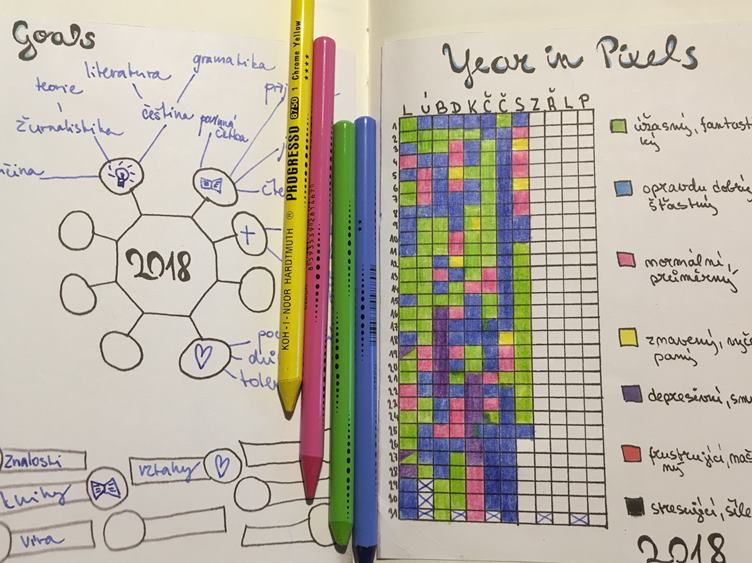 Goals
gramatika
literatura
teorie
čeština
žurnalistika
2018
znalosti
vztahy
knihy
víra
KOH-I-NOOR HARDTMUTH ® PROGRESSO 8750 1 Chrome Yellow
Year in Pixels
L Ú B D K Č Č S Z Ř L P
1
2
3
4
5
6
7
8
9
10
11
12
13
14
15
16
17
18
19
20
21
22
23
24
25
26
27
28
29
30
31
úžasný, fantast
ký
opravdu dobrý
šťastný
normální,
průměrný
znavený, vyče
paný
depresivní, smu
frustrující, naš
ný
stresující, šíle
2018